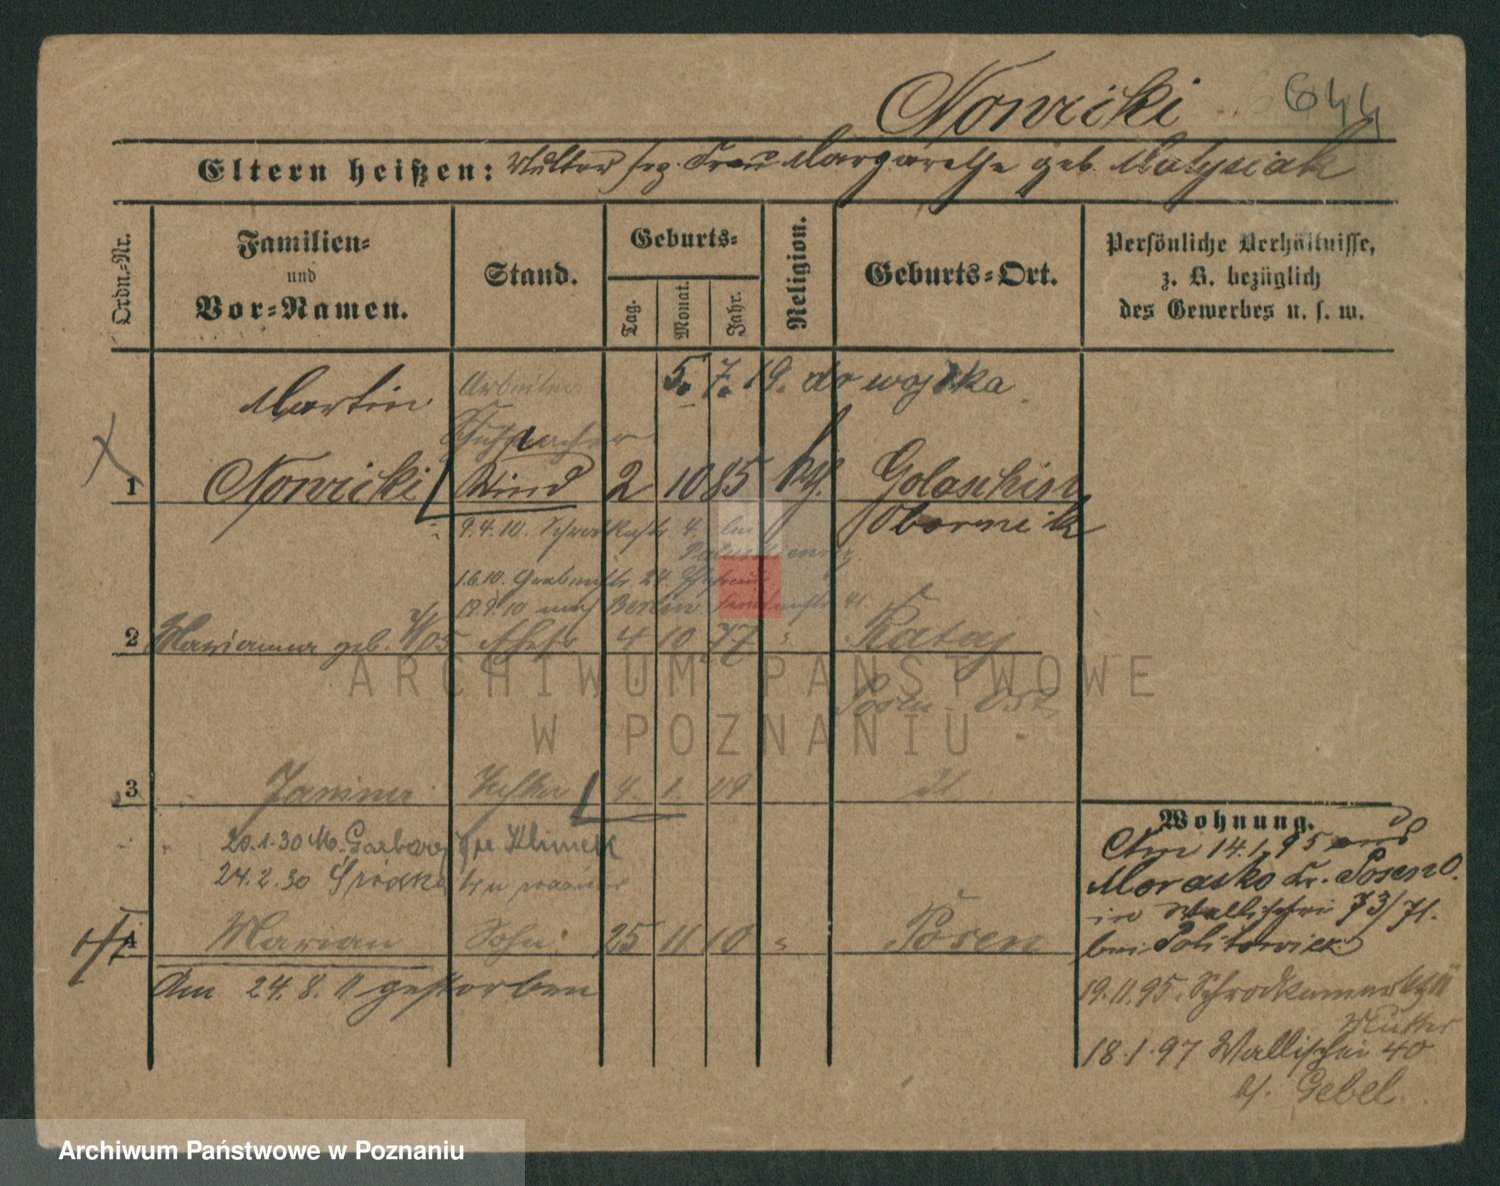 Nowicki 644
Eltern heißen: Mutter sep. Frau Margarethe geb. Matysiak
Ordn.-Nr.
Familien-
und
Vor-Namen.
Stand.
Geburts-
Tag.
Monat.
Jahr.
Religion.
Geburts-Ort.
Persönliche Verhältnisse,
z. B. bezüglich
des Gewerbes u. s. w.
Martin Arbeiter 5. 7. 19. do wojska
1 Nowicki Kind 2 10 85 Golaschin
Obornik
9.4.10. Schrodkastr. 4. bei
1.6.10. Grabenstr. 24.
12.9.10 nach Berlin
2 Marianna geb. Ehefr 4 10 77 " Rataj
Posen Ost
3 Janina Tochter 4. 1. 09
20.1.30 M. Garbary Klimek
24.2.30 Śródka
4 Marian Sohn 25 11 10 " Posen
Am 24. 8. 11 gestorben
Wohnung.
Am 14.1.95 aus
Morasko Kr. Posen O.
in Wallischei 73/71.
bei Politowicz
19.11.95. Schrodkamarkt
Mutter
18.1.97 Wallischei 40
b/. Gebel.
ARCHIWUM PAŃSTWOWE
W POZNANIU
Archiwum Państwowe w Poznaniu